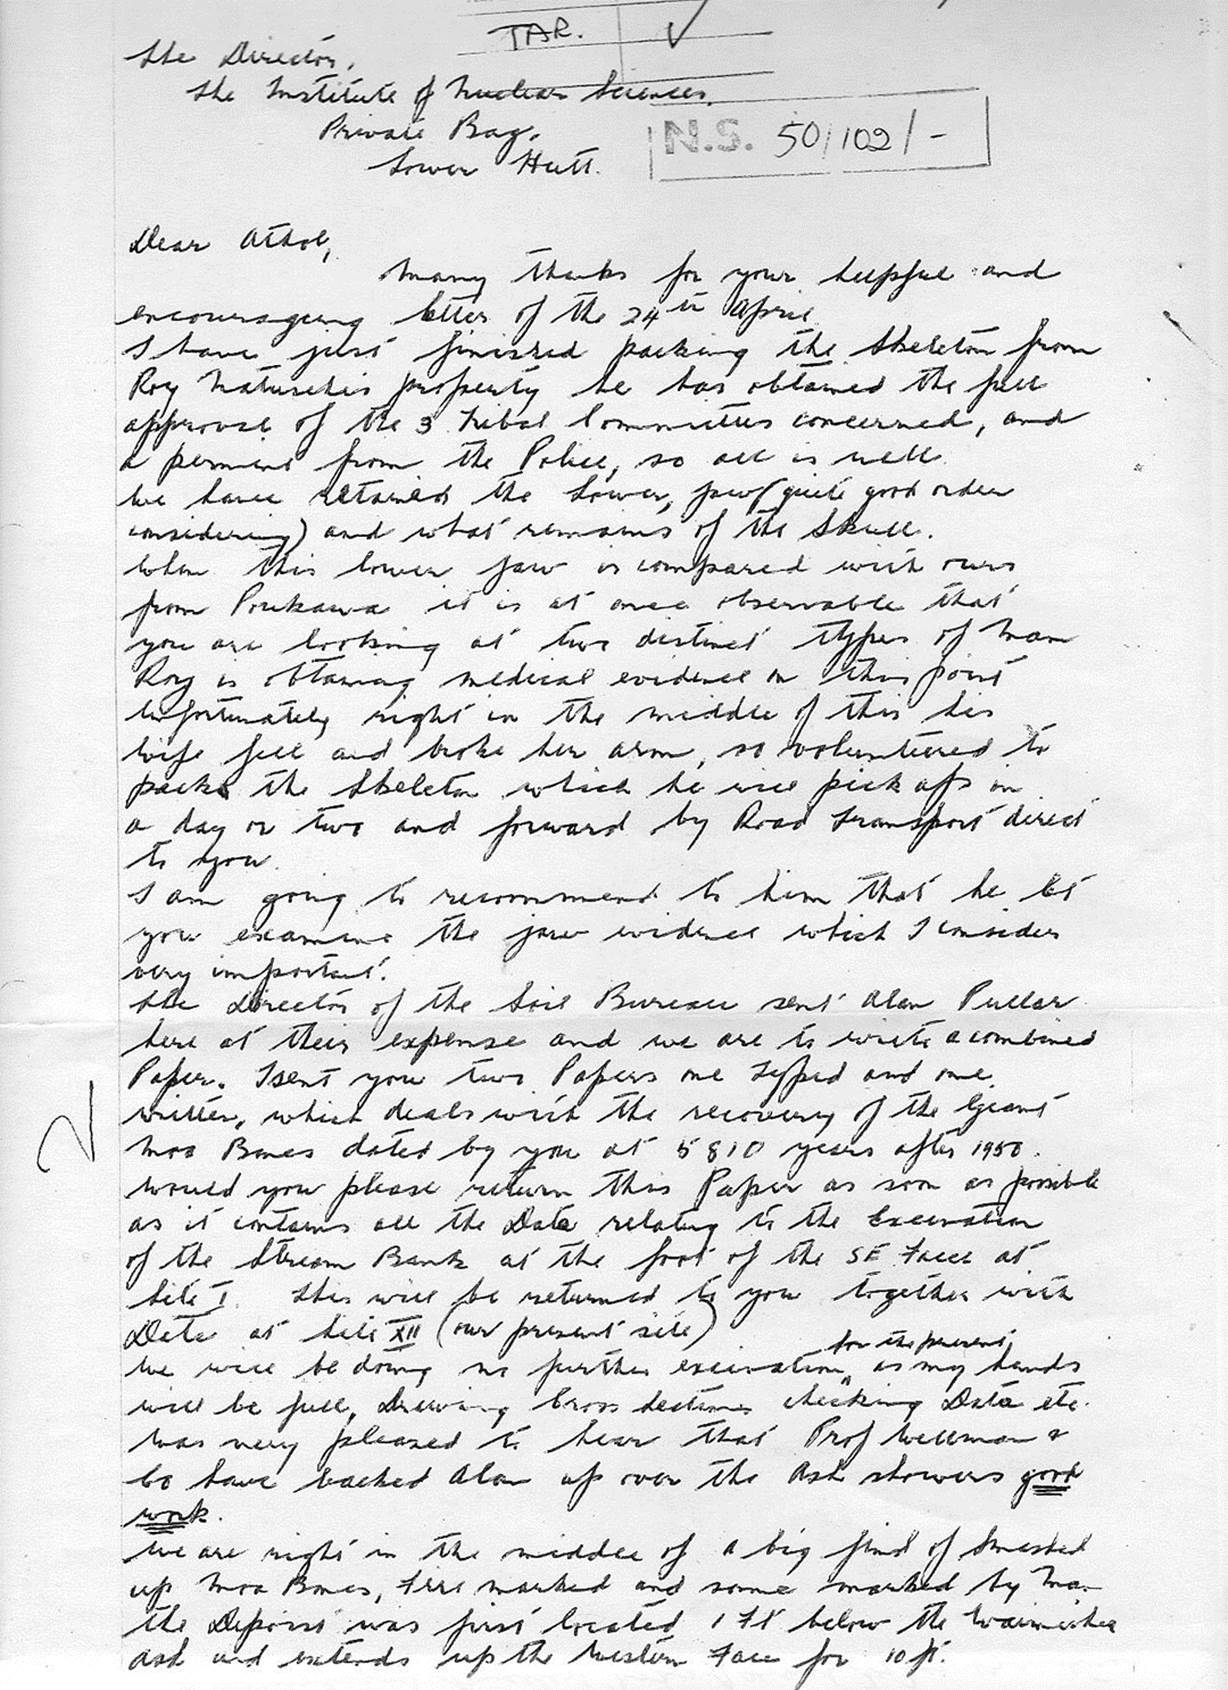 TAR. ✓
The Director,
The Institute of Nuclear Sciences.
Private Bag,
Lower Hutt.
N.S. 50/102/-
Dear Athol,
Many thanks for your helpful and
encouraging letter of the 24th April
I have just finished packing the Skeleton from
Roy property he has obtained the full
approval of the 3 Tribal Committees concerned, and
a permit from the Police, so all is well
We have retained the Lower, jaw (quite good order
considering) and what remains of the Skull.
When this lower jaw is compared with ours
from Poukawa it is at once observable that
you are looking at two distinct types of man
Roy is obtaining medical evidence on this point
Unfortunately right in the middle of this his
wife fell and broke her arm, so volunteered to
pack the Skeleton which he will pick up in
a day or two and forward by Road Transport direct
to you.
I am going to recommend to him that he let
you examine the jaw evidence which I consider
very important.
The Director of the Soil Bureau sent Alan Pullar
here at their expense and we are to write a combined
Paper. I sent you two Papers one Typed and one
written, which deals with the recovery of the Giant
Moa Bones dated by you at 5810 years after 1950.
Would you please return this Paper as soon as possible
as it contains all the Data relating to the Excavation
of the Stream Bank at the foot of the SE Face at
Site I. This will be returned to you together with
Data at Site XII (our present site)
for the present
We will be doing no further excavation, as my hands
will be full, Drawing Cross Sections checking Data etc.
Was very pleased to hear that Prof Wellman &
Co have backed Alan up over the Ash showers good
work.
We are right in the middle of a big find of Smashed
up Moa Bones, Fire marked and some marked by Man
the Deposit was first located 1 Ft below the Waimihia
Ash and extends up the Western Face for 10 ft.